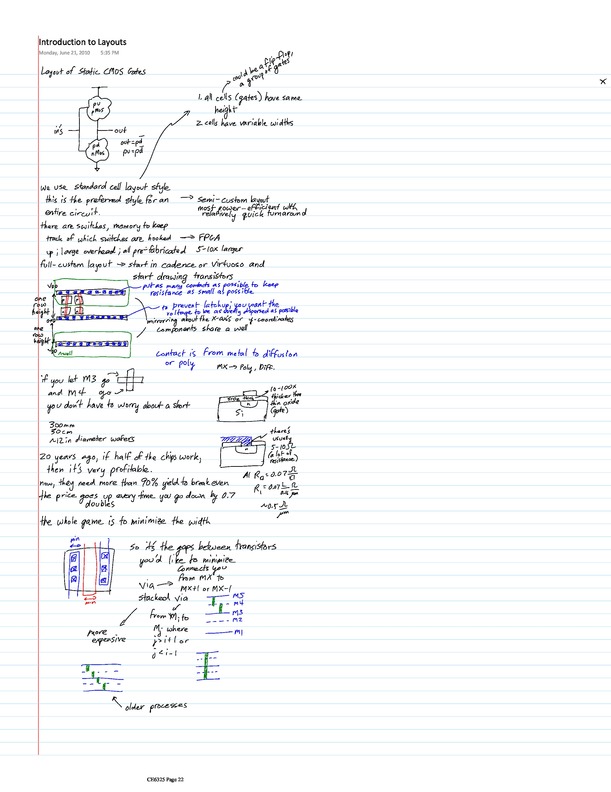 Introduction to Layouts
Monday, June 21, 2010 5:35 PM
Layout of Static CMOS Gates
could be a flip flop,
a group of gates
1. all cells (gates) have same
height
2. cells have variable widths
pu
pMOS
i/s
out
out = pd
pu = pd
pd
nMOS
we use standard cell layout style
this is the preferred style for an
entire circuit.
→ semi-custom layout
most power-efficient with
relatively quick turnaround
there are switches, memory to keep
track of which switches are hooked → FPGA
up; large overhead; all pre-fabricated 5-10x larger
full-custom layout → start in cadence or virtuoso and
start drawing transistors
VDD
put as many contacts as possible to keep
resistance as small as possible
one
row
height
to prevent latchup; you want the
voltage to be as evenly dispersed as possible
mirroring about the x-axis or y-coordinates
components share a well
one
row
height
nwell
contact is from metal to diffusion
or poly
MX → Poly, Diff.
if you let M3 go
and M4 go
you don't have to worry about a short
10-100x
thicker than
thin oxide
(gate)
n
Si
300mm
30cm
~12in diameter wafers
there's
usually
5-10Ω
(a lot of
resistance)
n
20 years ago, if half of the chips work,
then it's very profitable.
now, they need more than 90% yield to break even
the price goes up every time you go down by 0.7
doubles
Al R□ = 0.07 Ω/□
~0.5 Ω/μm
the whole game is to minimize the width
pin
so it's the gaps between transistors
you'd like to minimize
via → connects you
from MX to
MX+1 or MX-1
stacked via
from Mi to
Mj where
j>i+1 or
j<i-1
more
expensive
M5
M4
M3
M2
M1
older processes
CE6325 Page 22